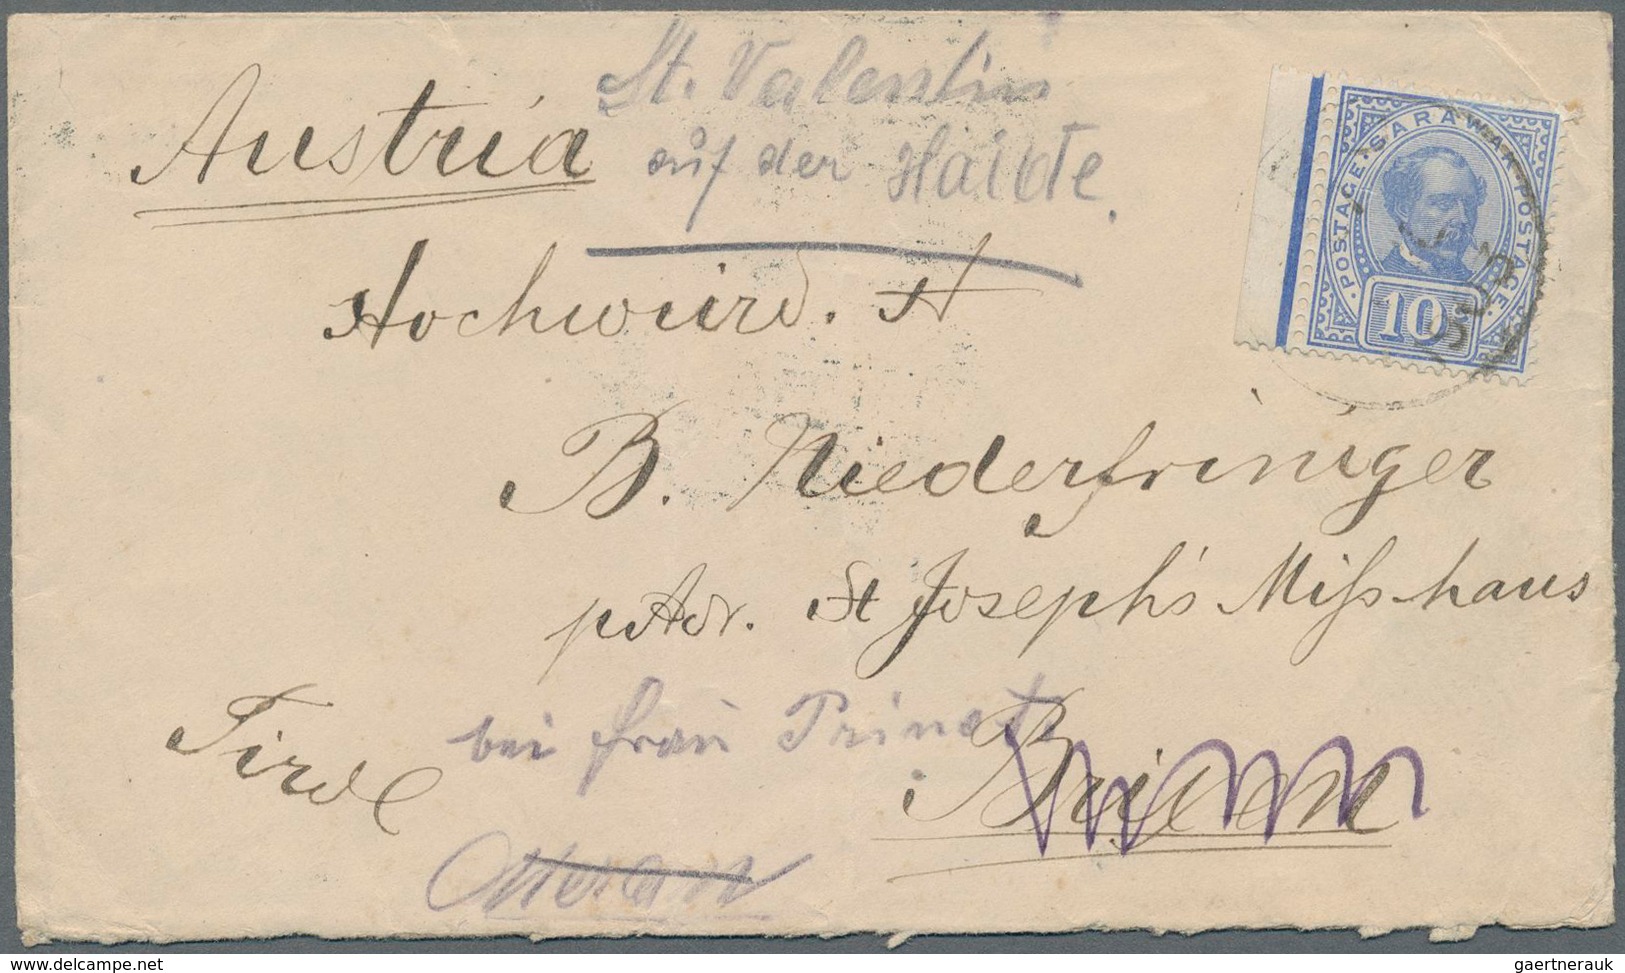 St. Valentin
auf der Haide.
Austria
POSTAGE. SARAWAK POSTAGE.
10c
Hochwürd. H
B. Niederfriniger
p. Adr. St Joseph's Misshaus
Tirol
bei Frau
Brixen
Meran
delcampe.net
gaertnerauk